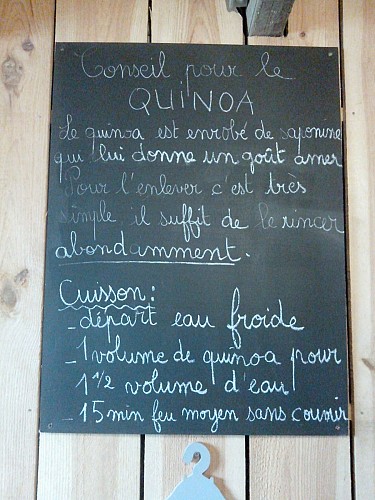 Conseil pour le
QUINOA
Le quinoa est enrobé de saponine
qui lui donne un goût amer
Pour l'enlever c'est très
simple, il suffit de le rincer
abondamment.
Cuisson:
- départ eau froide
- 1 volume de quinoa pour
1 1/2 volume d'eau
- 15 min feu moyen sans couvrir